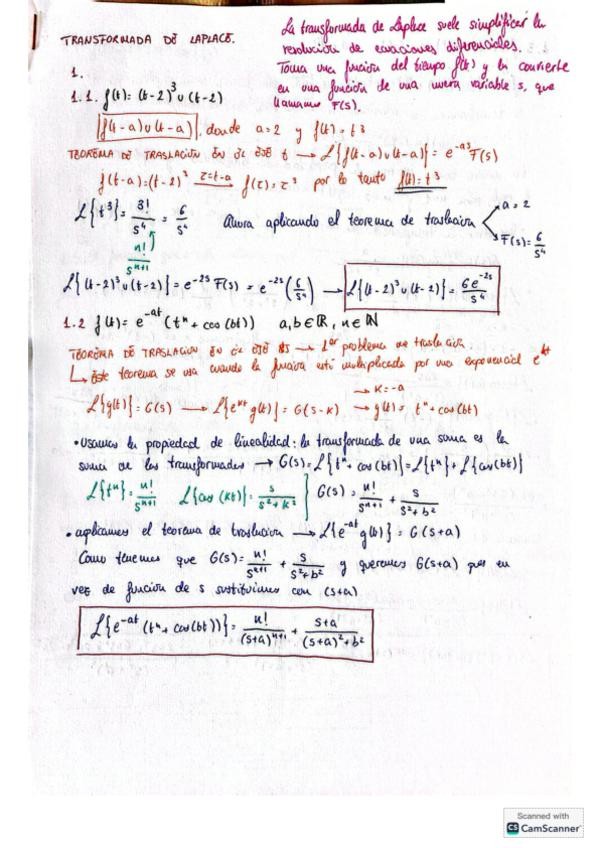 La transformada de Laplace suele simplificar la
TRANSFORMADA DE LAPLACE.
resolución de ecuaciones diferenciales.
1.
Toma una función del tiempo f(t) y la convierte
1.1. f(t) = (t-2)³ u(t-2)
en una función de una nueva variable s, que
llamamos F(s).
f(t-a)u(t-a), donde a=2 y f(t)=t³
TEOREMA DE TRASLACIÓN EN EL EJE t → L{f(t-a)u(t-a)} = e^-as F(s)
f(t-a)=(t-2)³ τ=t-a → f(τ)=τ³ por lo tanto f(t)=t³
L{t³} = 3!/s⁴ = 6/s⁴ Ahora aplicando el teorema de traslación a=2
F(s)=6/s⁴
n!/s^n+1
L{(t-2)³u(t-2)} = e^-2s F(s) = e^-2s (6/s⁴) → L{(t-2)³u(t-2)} = 6e^-2s/s⁴
1.2 f(t)= e^-at (tⁿ + cos(bt)) a,b∈ℝ, n∈ℕ
TEOREMA DE TRASLACIÓN EN EL EJE s → 1er problema de traslación
↳ Este teorema se usa cuando la función está multiplicada por una exponencial e^kt
→ k=-a
L{g(t)} = G(s) → L{e^kt g(t)} = G(s-k) → g(t) = tⁿ + cos(bt)
• Usamos la propiedad de linealidad: la transformada de una suma es la
suma de las transformadas → G(s)=L{tⁿ + cos(bt)}=L{tⁿ}+L{cos(bt)}
L{tⁿ} = n!/s^n+1 L{cos(kt)} = s/s²+k² } G(s) = n!/s^n+1 + s/s²+b²
• aplicamos el teorema de traslación → L{e^-at g(t)} = G(s+a)
Como tenemos que G(s)= n!/s^n+1 + s/s²+b² y queremos G(s+a) pues en
vez de función de s sustituimos con (s+a)
L{e^-at (tⁿ + cos(bt))} = n!/(s+a)^n+1 + s+a/(s+a)²+b²
Scanned with
CS CamScanner